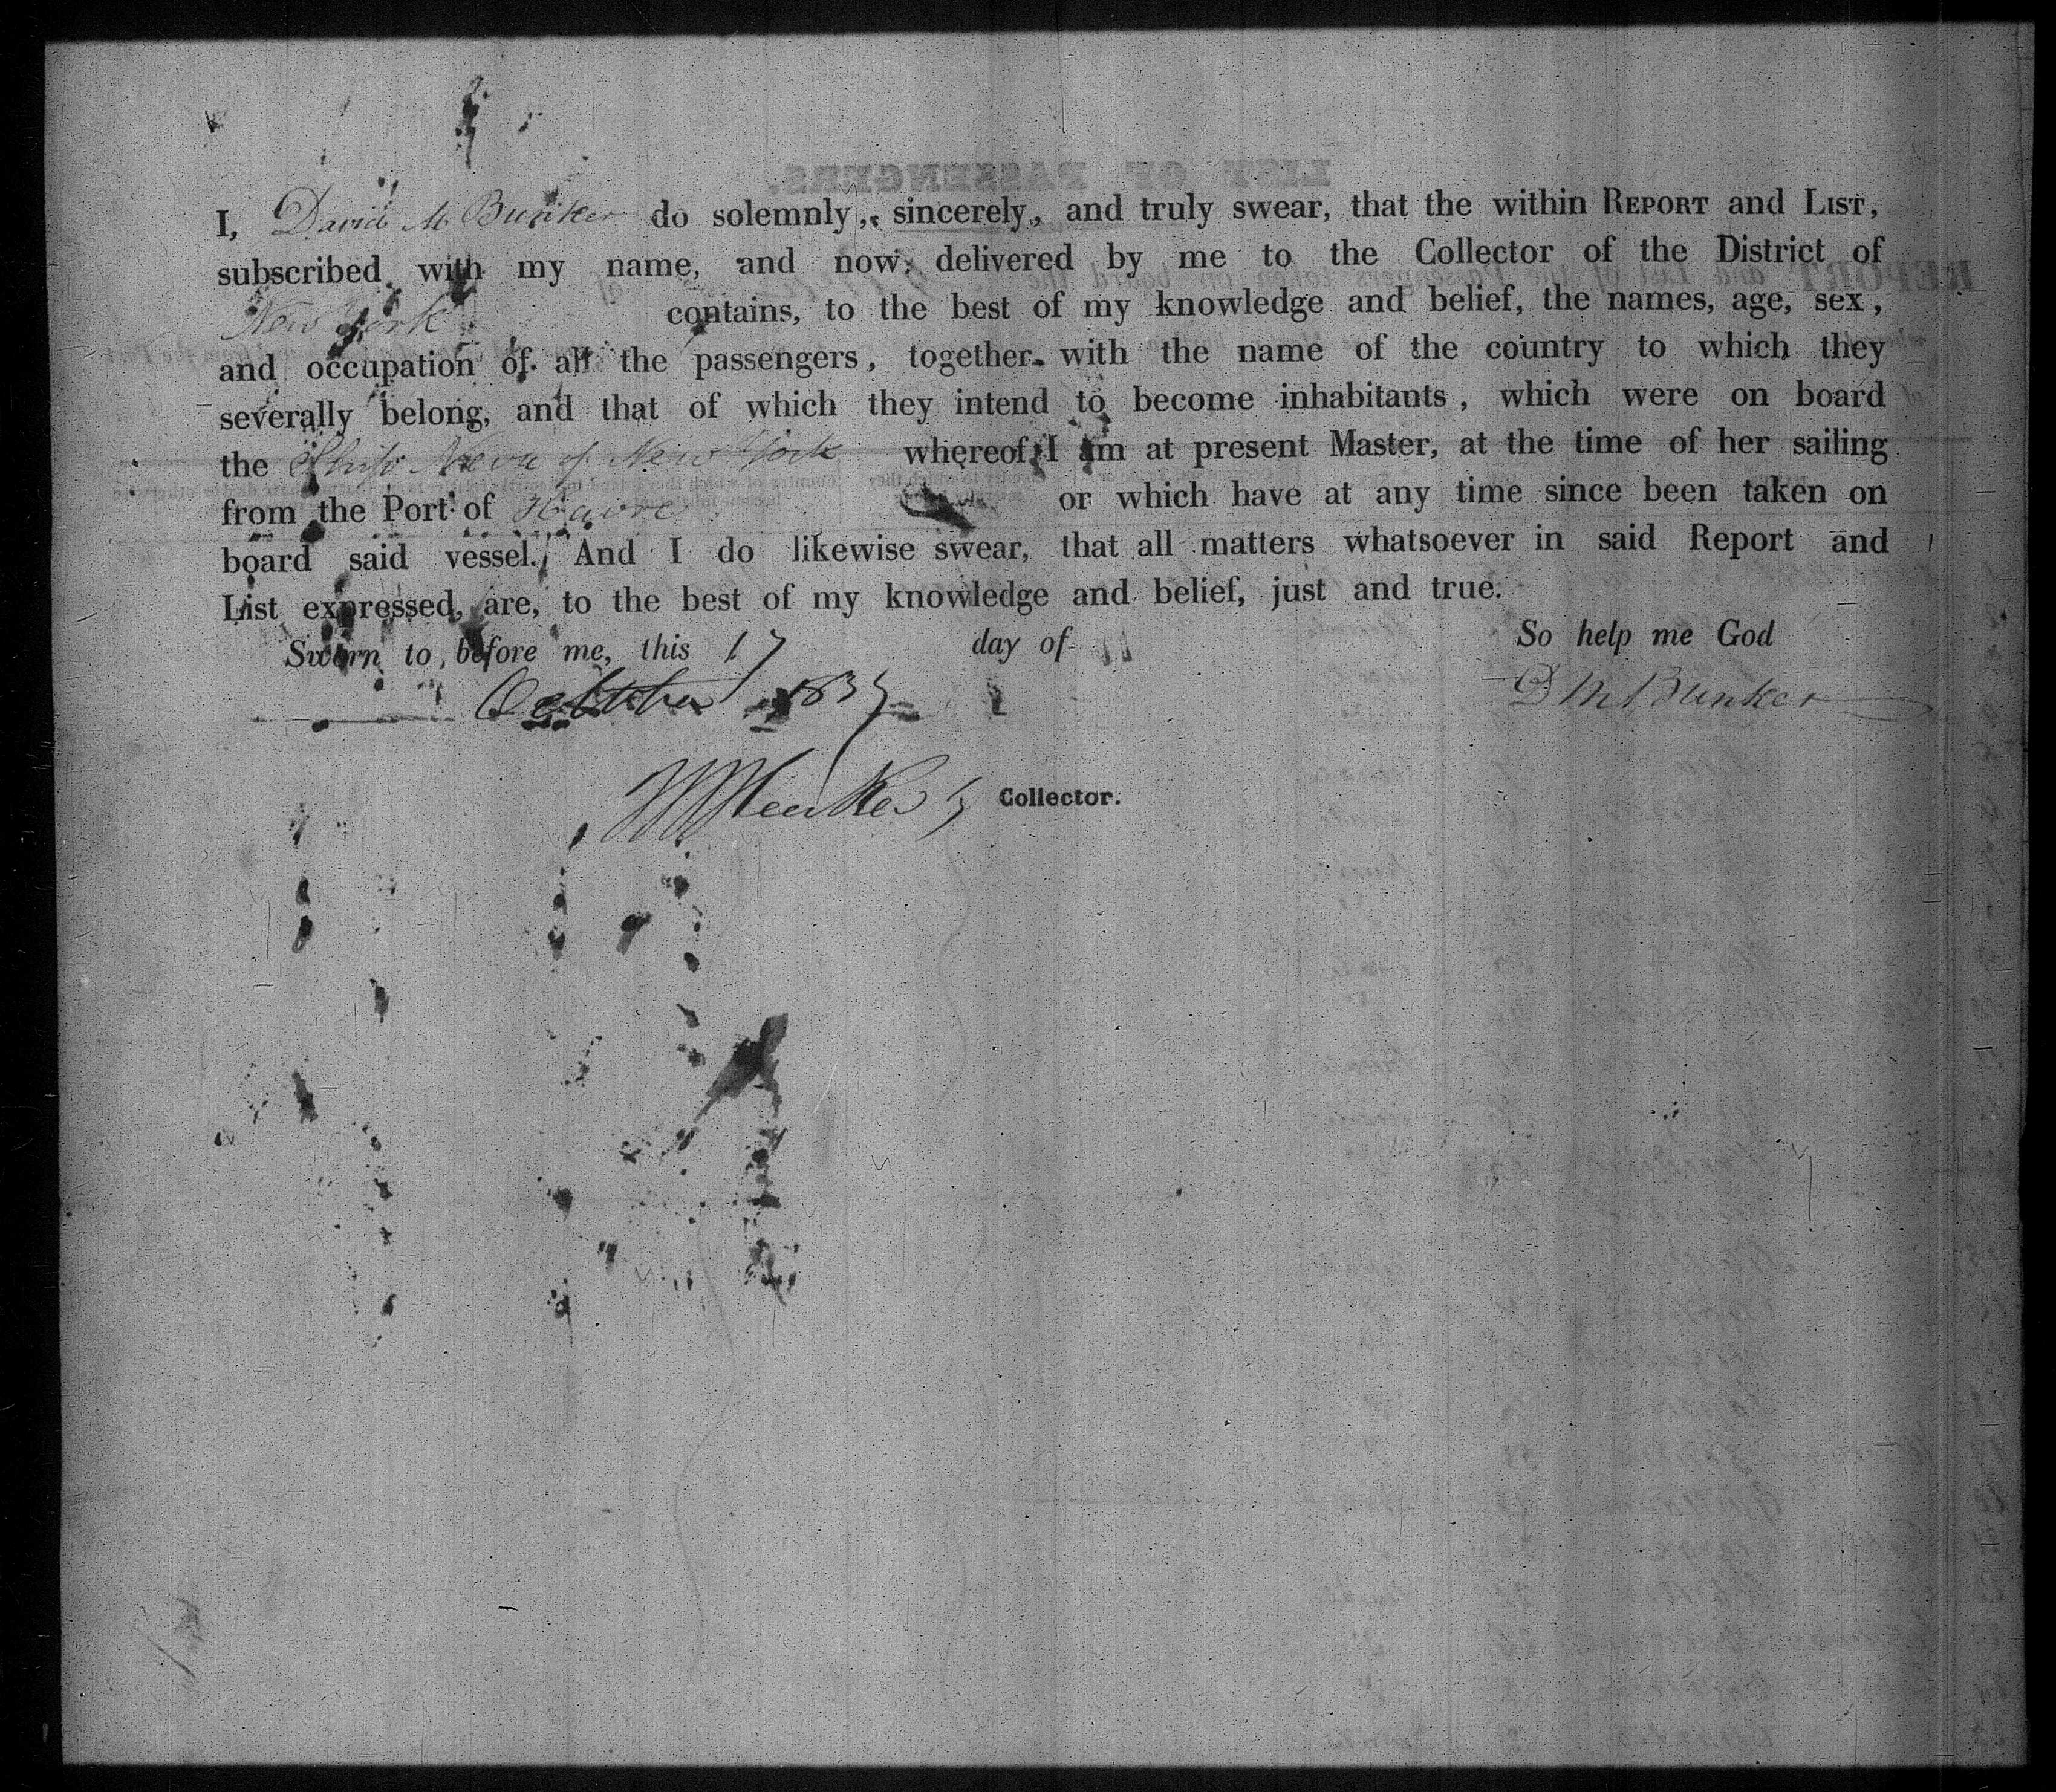 I, David M Bunker do solemnly, sincerely, and truly swear, that the within REPORT and LIST,
subscribed with my name, and now delivered by me to the Collector of the District of
New York contains, to the best of my knowledge and belief, the names, age, sex,
and occupation of all the passengers, together with the name of the country to which they
severally belong, and that of which they intend to become inhabitants, which were on board
the Ship Neva of New York whereof I am at present Master, at the time of her sailing
from the Port of Havre or which have at any time since been taken on
board said vessel. And I do likewise swear, that all matters whatsoever in said Report and
List expressed, are, to the best of my knowledge and belief, just and true.
Sworn to before me, this 17 day of So help me God
October 1837 D M Bunker
Collector.